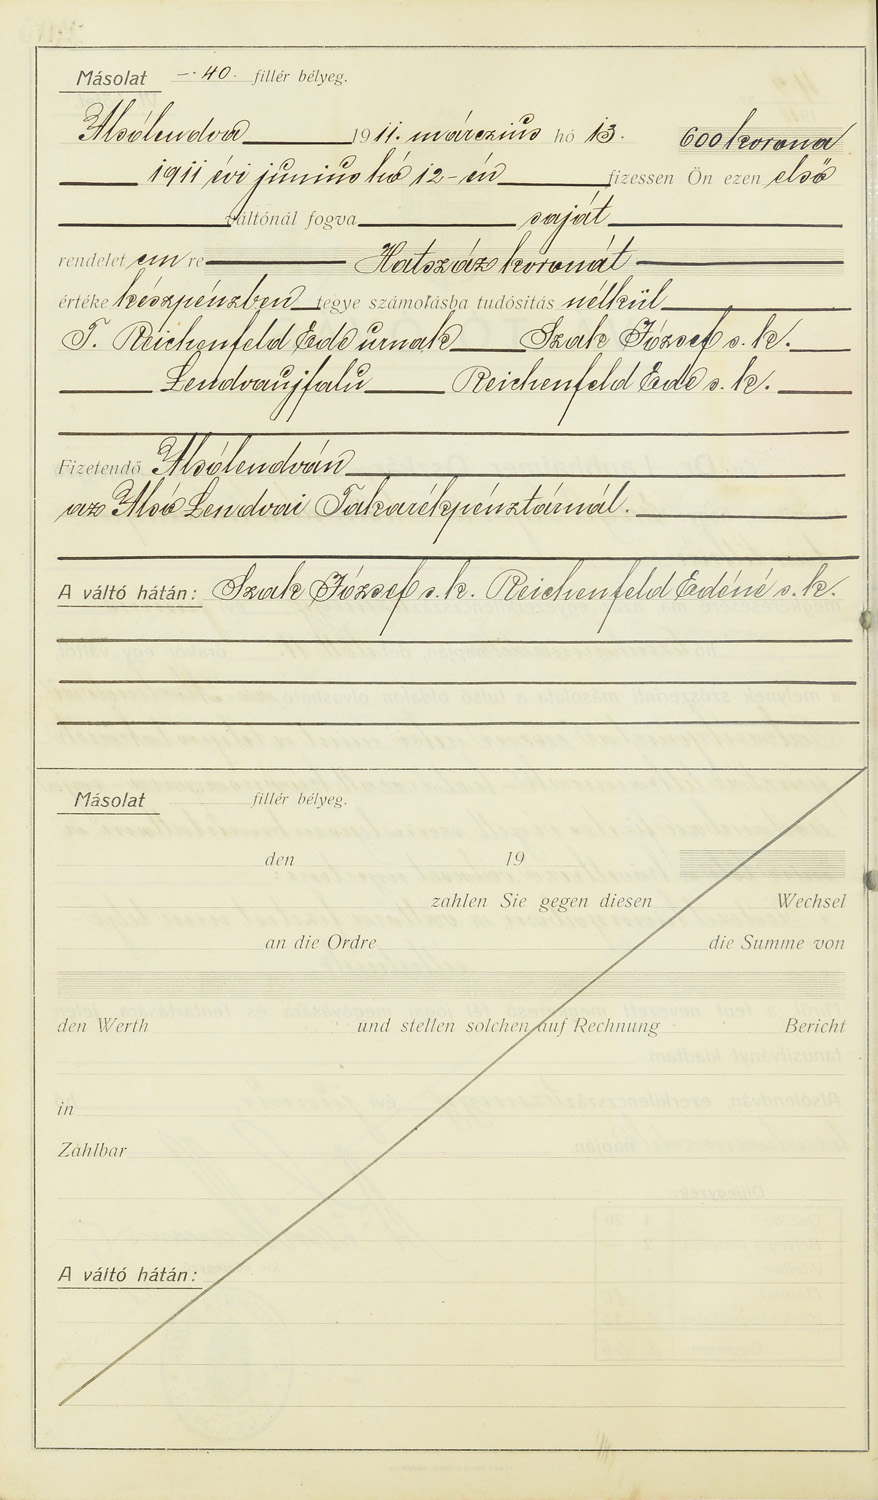 Másolat —·40· fillér bélyeg.
Alsólendva 1911. márczius hó 13. 600 korona
1911 évi junius hó 12-én fizessen Ön ezen első
váltónál fogva saját
rendelet em re Hatszáz koronát
értéke készpénzben tegye számolásba tudósitás nélkül
T. Reichenfeld Ede urnak Szak József s. k.
Lendvaujfalu Reichenfeld Ede s. k.
Fizetendő Alsólendván
az Alsó Lendvai Takarékpénztárnál.
A váltó hátán: Szak József s. k. Reichenfeld Edéné s. k.
Másolat fillér bélyeg.
den 19
zahlen Sie gegen diesen Wechsel
an die Ordre die Summe von
den Werth und stellen solchen auf Rechnung Bericht
in
Zahlbar
A váltó hátán: